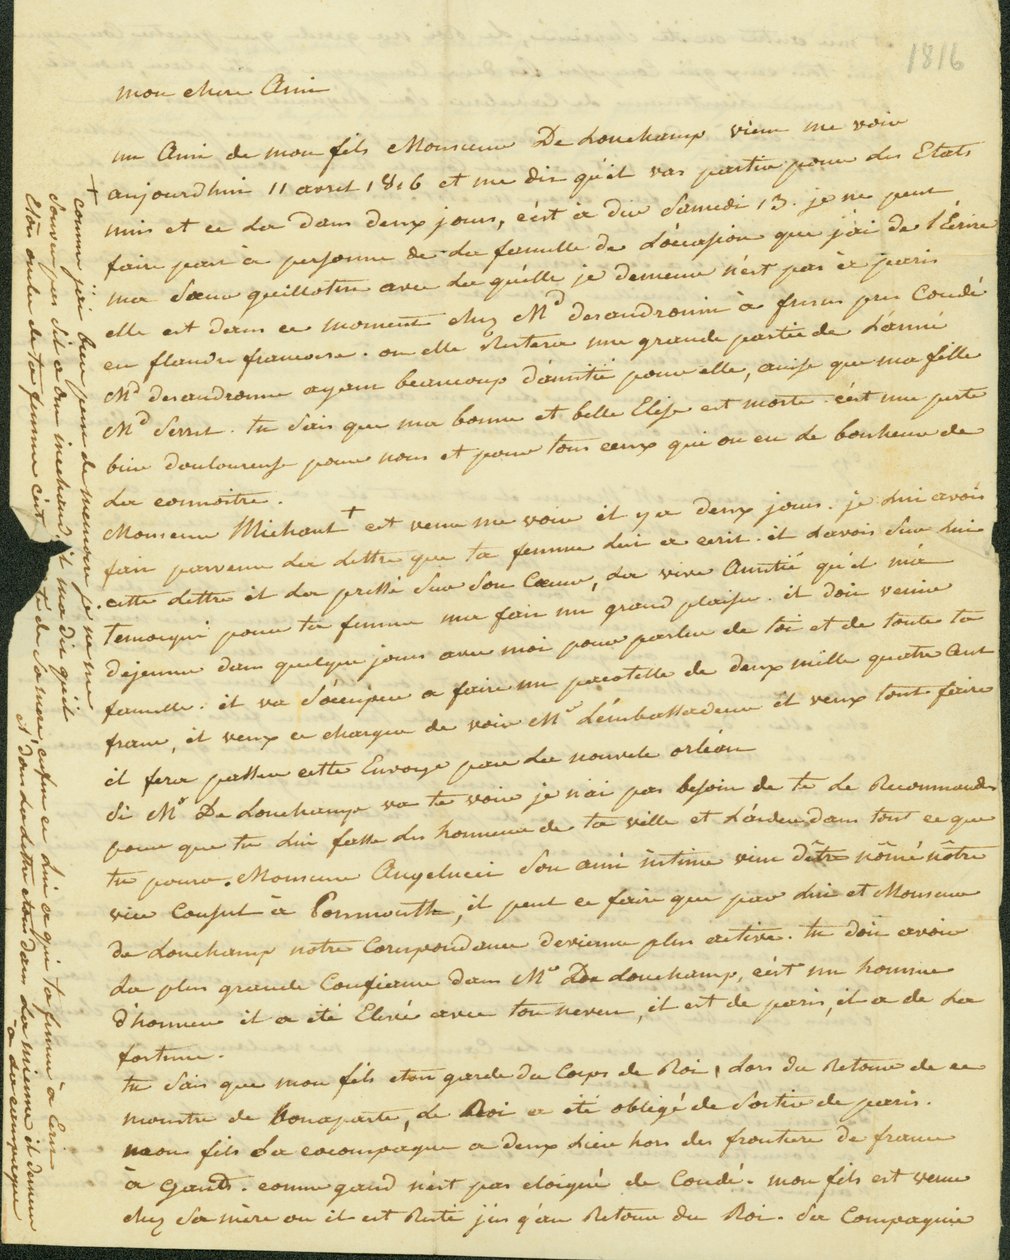 1816
mon chere Ami
un Ami de mon fils Monsieur De Lonchamp vien me voir
aujourdhui 11 avril 1816 et me dit qu'il vas partir pour les Etats
unis et ce la dans deux jours, c'est a dire Samedi 13. je ne peut
faire part à personne de la famille de L'ocasion que j'ai de t'Ecrire
ma Sœur guillotin avec la quelle je demeure n'est pas à paris
elle est dans ce moment chez Md desandrouin à frenes pres Condé
en flandre francoise. ou elle Restera une grande partie de L'anné
Md desandrouin ayant beaucoup d'amitié pour elle, ainsi que ma fille
Md Serret. tu Sais que ma bonne et belle Elise est morte. c'est une perte
bien douloureuse pour nous et pour tous ceux qui on eu le bonheur de
la connoitre.
Monsieur Michaut + est venu me voir il y a deux jours. je lui avois
fait parvenir la lettre que ta femme lui a ecrit. il L'avois Sur lui
cette lettre il la pressé Sur Son Cœur, la vive Amitié qu'il m'a
temoigné pour ta femme me fait un grand plaisir. il doit venir
dejeuner dans quelque jours avec moi pour parler de toi et de toute ta
famille. il va S'occuper a faire une pacotille de deux mille quatre cent
franc, il veux ce charger de voir Mr L'embassadeur il veux tout faire
il fera passer cette Envoye par la nouvele orléan
Si Mr De Lonchamp va te voir je n'ai pas besoin de te le Recommander
pour que tu lui fasse les honneur de ta ville et L'aider dans tout ce que
tu poura. Monsieur Angelucci Son ami intime vien d'être nômé nôtre
vice Consul à Porsmouth, il peut ce faire que par lui et Monsieur
de Lonchamp notre Corespondance devienne plus active. tu doit avoir
la plus grande Confiance dans Mr De Lonchamp, c'est un homme
d'honneur il a été Elevé avec ton neveu, il est de paris, il a de la
fortune.
tu Sais que mon fils etoit garde du Corps du Roi, Lors du Retour de ce
monstre de Bonaparte, Le Roi a été obligé de Sortir de paris.
mon fils La accompagné a deux Lieu hors des frontiere de france
à Gand. comme gand n'est pas eloigné de Condé. mon fils est venu
chez Sa mère ou il est Resté jus qu'au Retour du Roi. Sa Compagnie
+ comme j'ai bien peu de memoire je ne me
Souvien pas Si il a on michaud, il ma dit qu'il
Etoit oncle de ta femme c'est de Sa mere, enfin ce lui a qui ta femme à Ecrit
et dans La lettre etoit dans La mienne il demeure
a la campagne